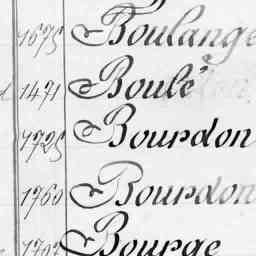 1675 Boulange
1471 Boulé
1725 Bourdon
1760 Bourdon
Bourge